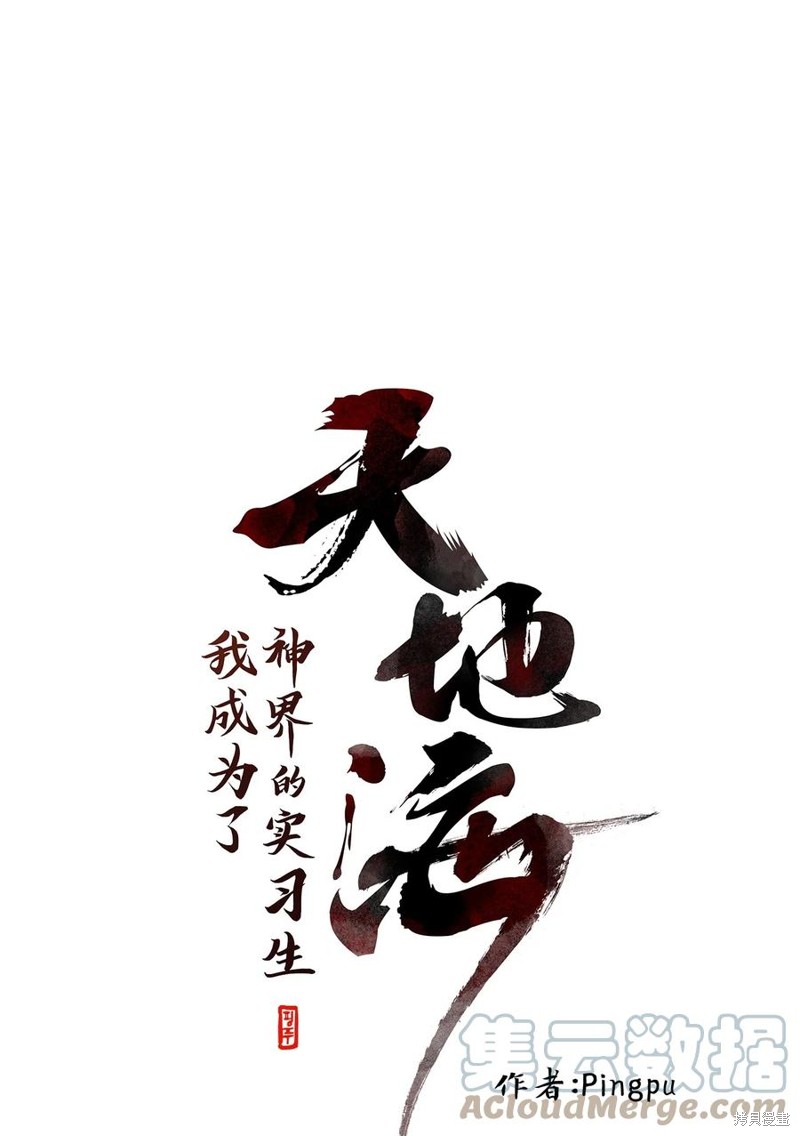 天地海
我成为了
神界的实习生
핑푸
集云数据
作者:Pingpu
AcloudMerge.com
拷貝漫畫